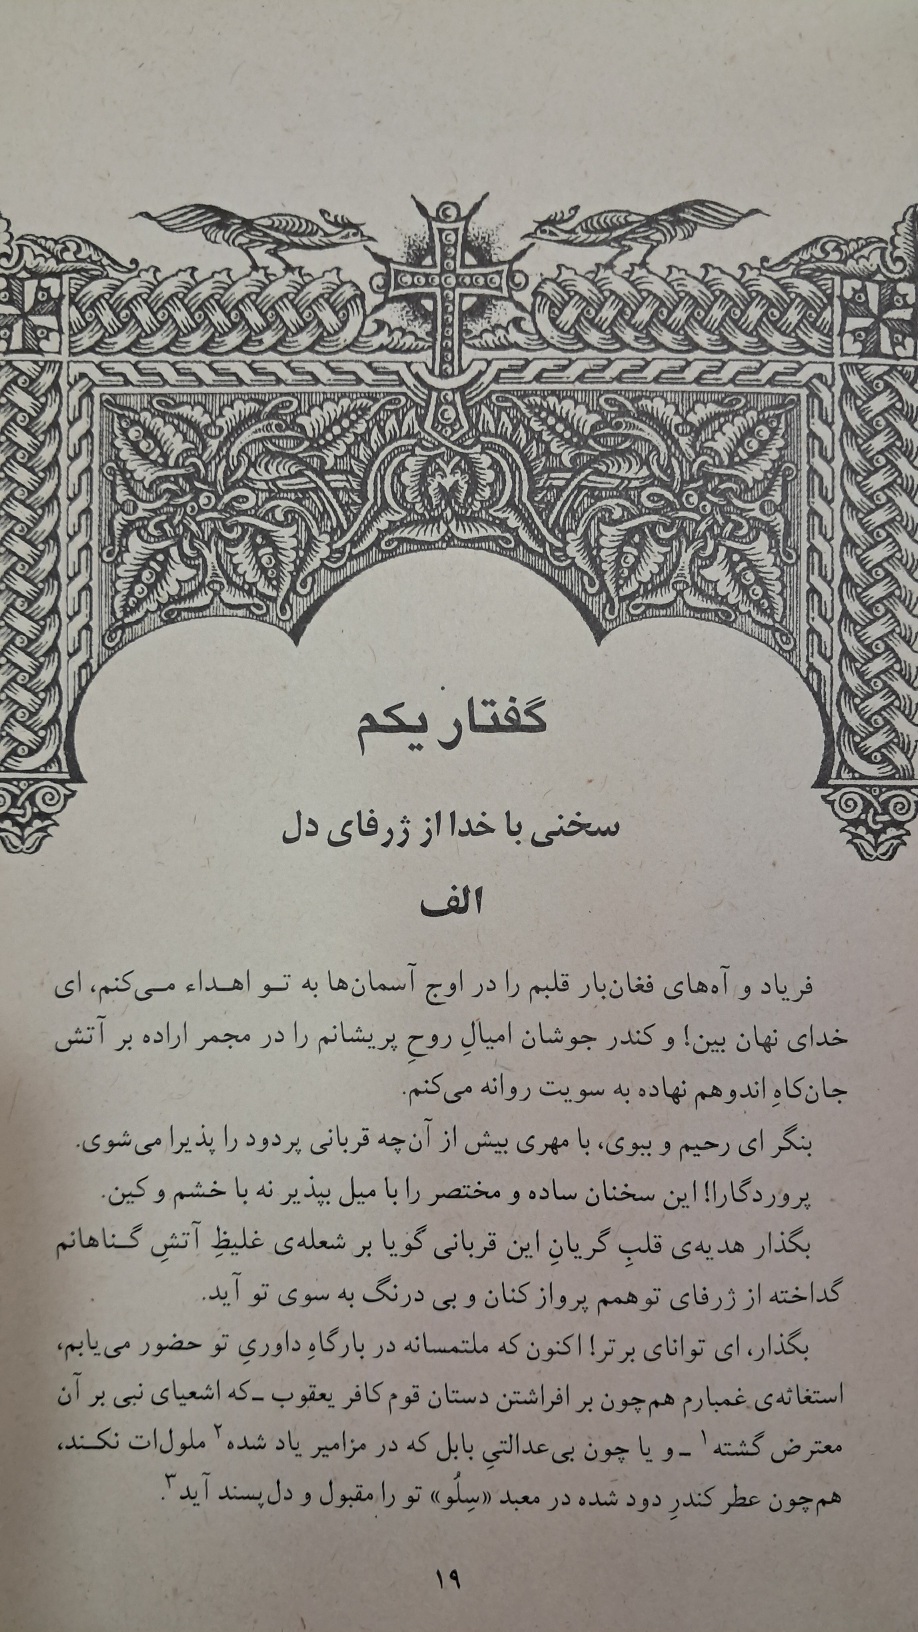 گفتار یکم
سخنی با خدا از ژرفای دل
الف
فریاد و آه‌های فغان‌بار قلبم را در اوج آسمان‌ها به تـو اهـداء مـی‌کنم، ای
خدای نهان بین! و کندر جوشان امیالِ روحِ پریشانم را در مجمر اراده بر آتش
جان‌کاهِ اندوهم نهاده به سویت روانه می‌کنم.
بنگر ای رحیم و ببوی، با مهری بیش از آن‌چه قربانی پردود را پذیرا می‌شوی.
پروردگارا! این سخنان ساده و مختصر را با میل بپذیر نه با خشم و کین.
بگذار هدیه‌ی قلبِ گریانِ این قربانی گویا بر شعله‌ی غلیظِ آتشِ گـناهانم
گداخته از ژرفای توهمم پرواز کنان و بی درنگ به سوی تو آید.
بگذار، ای توانای برتر! اکنون که ملتمسانه در بارگاهِ داوریِ تو حضور می‌یابم،
استغاثه‌ی غمبارم هم‌چون بر افراشتن دستان قوم کافر یعقوب ـ‌که اشعیای نبی بر آن
معترض گشته۱ ـ و یا چون بی‌عدالتیِ بابل که در مزامیر یاد شده۲ ملول‌ات نکـند،
هم‌چون عطر کندرِ دود شده در معبد «سِلُو» تو را مقبول و دل‌پسند آید۳.
۱۹